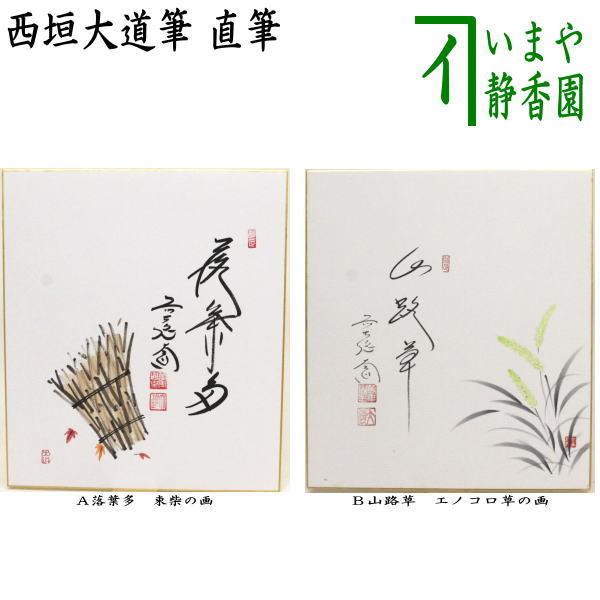 西垣大道筆 直筆
いまや
静香園
落葉多
山路草
A落葉多 束柴の画
B山路草 エノコロ草の画